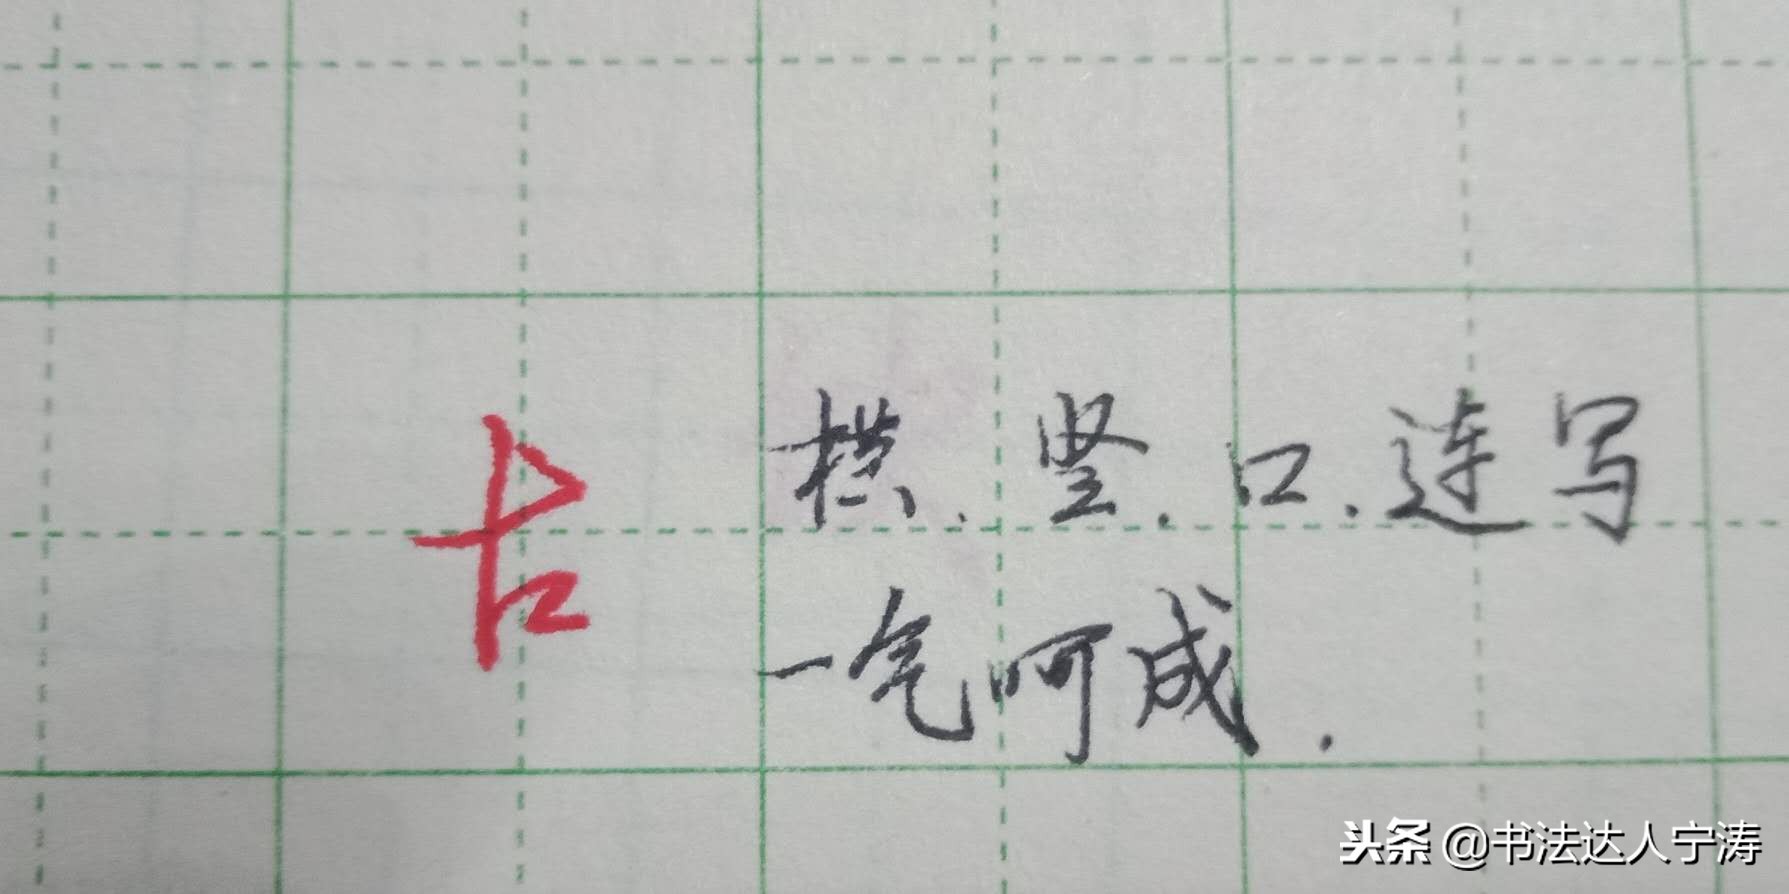 古 横、竖、口、连写
一气呵成.
头条 @书法达人宁涛